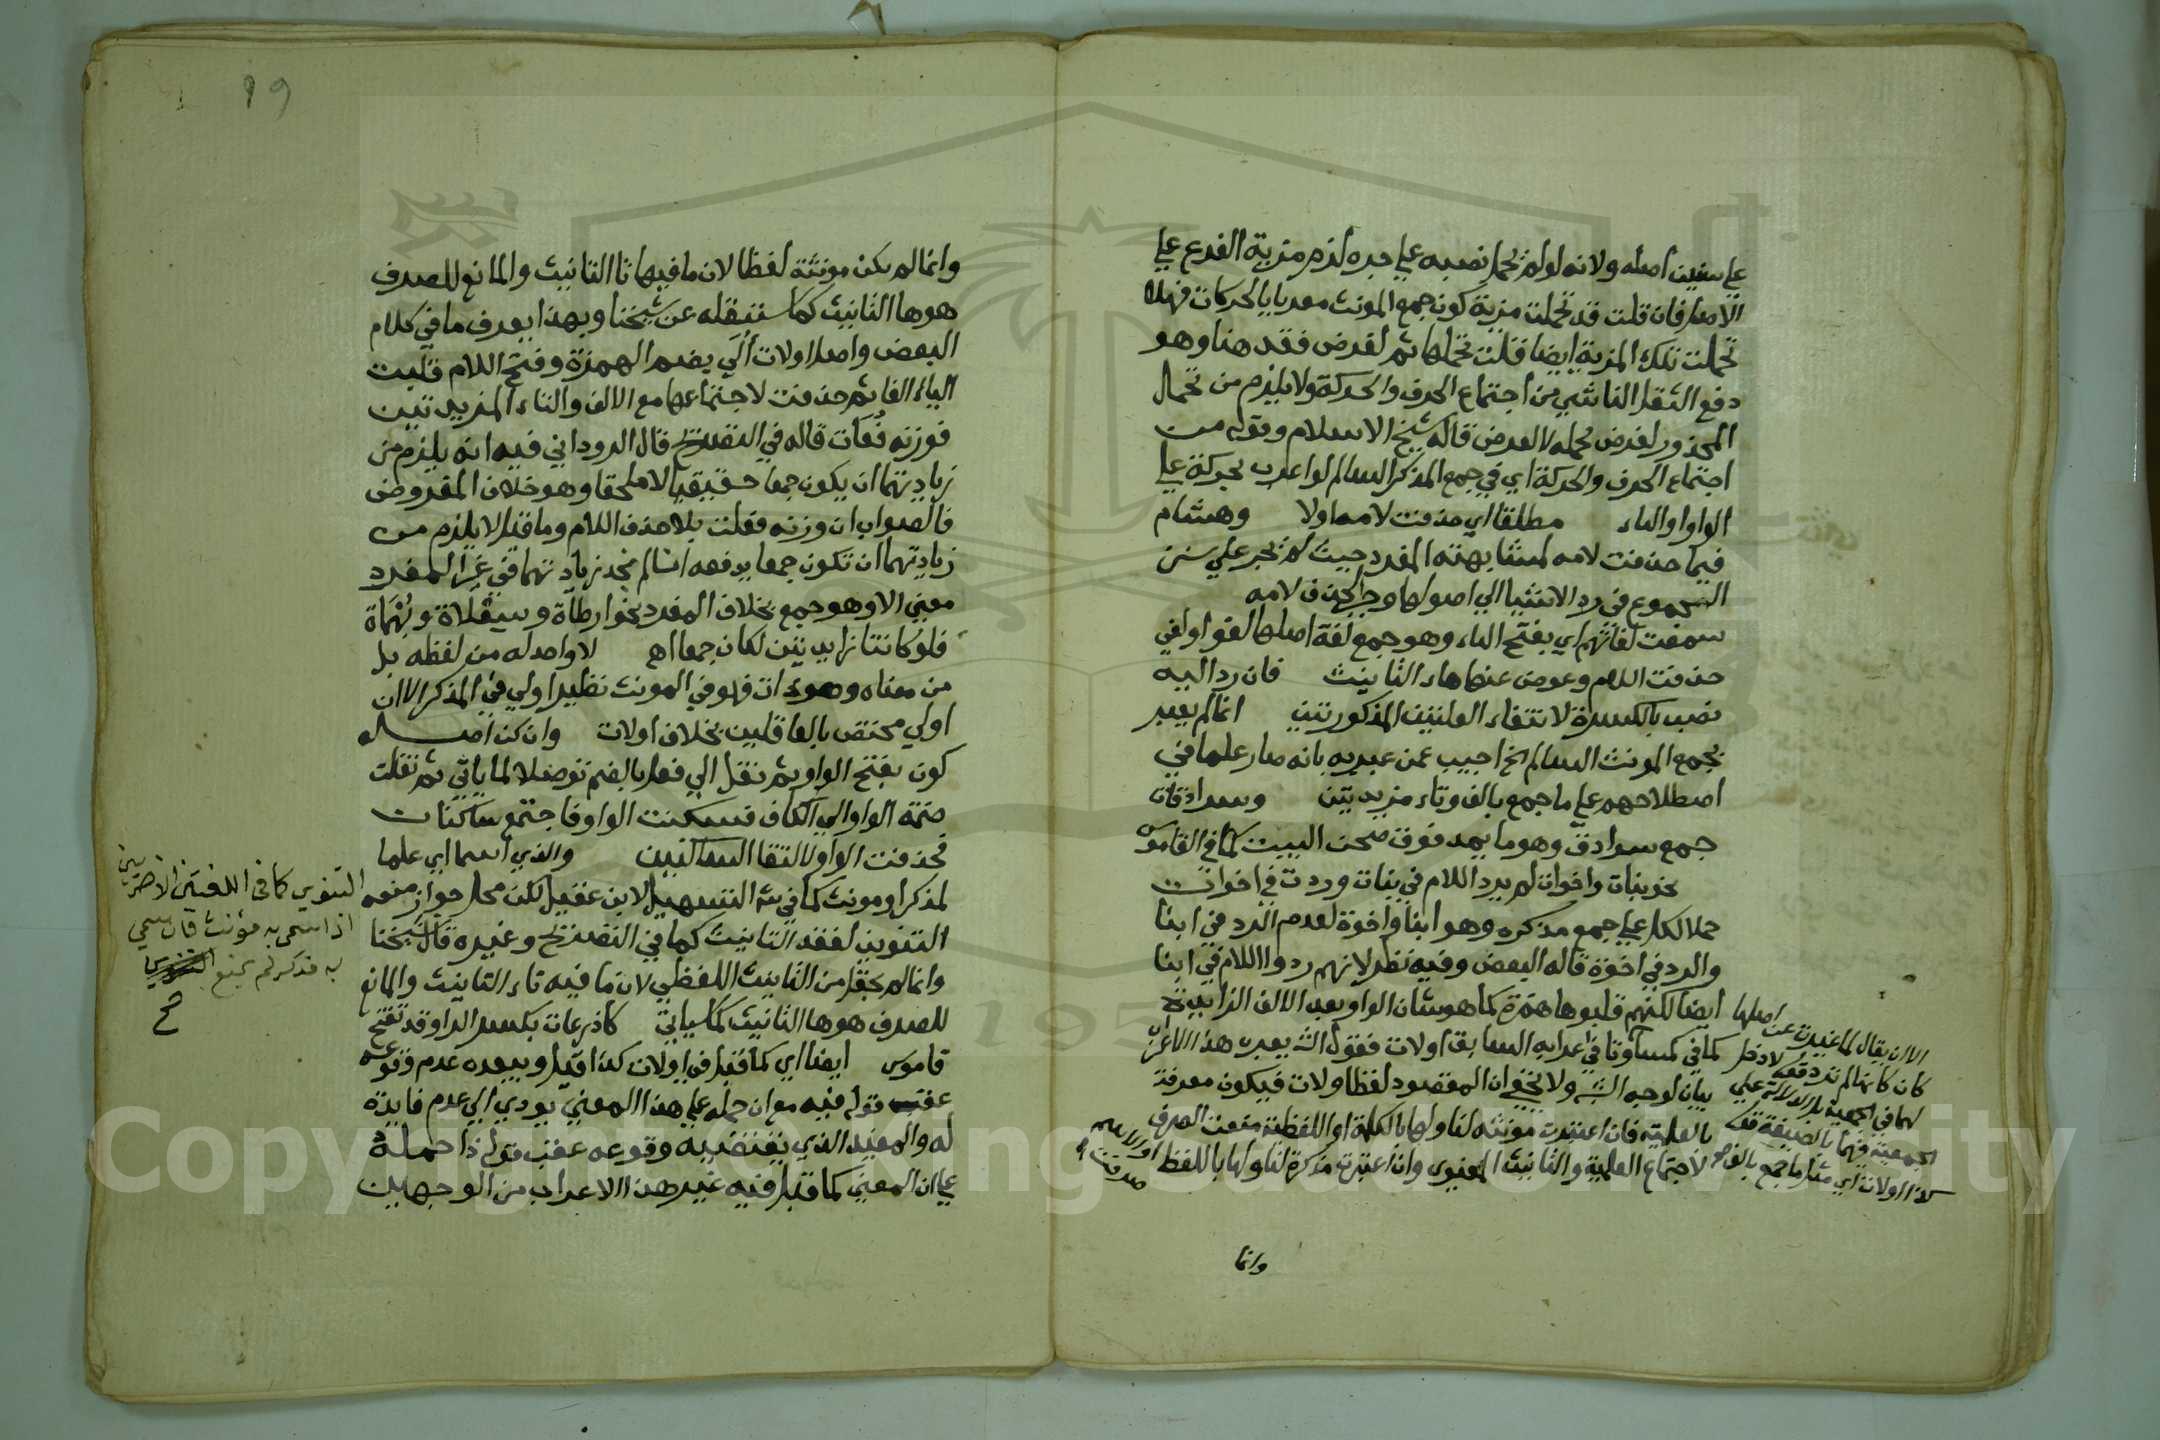 علي سنن أصله ولانه لو لم يحمل نصبه علي جره لزم مزية الفرع علي
الاصل فان قلت قد تحملت مزية كون جمع المونث معربا بالحركات فهلا
تحملت تلك المزية ايضا قلت تحملها ثم لغرض فقد هنا وهو
دفع الثقل الناشي من اجتماع الحرف والحركة ولا يلزم من تحمل
المحذور لغرض تحمله لا لغرض قاله شيخ الاسلام وقوله من
اجتماع الحرف والحركة اي في جمع المذكر السالم لو اعرب بحركة علي
الواو او الياء مطلقا اي حذفت لامه اولا وهشام
فيما حذفت لامه لمشابهته المفرد حيث لم يجر علي سنن
الجموع في رد الاشيا الي اصولها وجبر الحذف لامه
سمعت لغاتهم اي بفتح التاء وهو جمع لغة اصلها لغو او لغي
حذفت اللام وعوض عنها هاء التانيث فان رد اليه
نصب بالكسرة لانتفاء العلتين المذكورتين انما لم يعبر
بجمع المونث السالم الخ اجيب عمن عبر به بانه صار علما في
اصطلاحهم علي ما جمع بالف وتاء مزيدتين وسرادقات
جمع سرادق وهو ما يمد فوق صحن البيت كما في القاموس
نحو بنات واخوات لم يرد اللام في بنات وردت في اخوات
حملا لكل علي جمع مذكره وهو ابنا واخوة لعدم الرد في ابنا
والرد في اخوة قاله البعض وفيه نظر لانهم ردوا اللام في ابنا
ايضا لكنهم قلبوها همزة كما هو شان الواو بعد الالف الزايدة
كما في كساء وتا في اعرابه السابق اولات فقول الش يعرب هذا الاعراب
بيان لوجه الشبه ولا يخفي ان المقصود لفظ اولات فيكون معرفة
بالعلمية فان اعتبرت مونثه لتاولها بالكلمة او اللفظة منعت الصرف
لاجتماع العلمية والتانيث المعنوي وان اعتبرت مذكرة لتاولها باللفظ او الاسم
صرفت
الا ان يقال لما غيرت عن اصلها
كان كانها لم ترد فقد لا دخل
لها في الجمعية بل الدلالة علي
الجمعية فيهما بالصيغة فقط
كذا اولات اي مثل ما جمع بالف
وانما
19
وانما لم يكن مونثة لفظا لان ما فيها تا التانيث والمانع للصرف
هو ها التانيث كما سننقله عن شيخنا وبهذا يعرف ما في كلام
البعض واصل اولات أُلَي بضم الهمزة وفتح اللام قلبت
الياء الفا ثم حذفت لاجتماعها مع الالف والتاء المزيدتين
فوزنه فُعَات قاله في التصريح قال الروداني فيه انه يلزم من
زيادتهما ان يكون جمعا حقيقيا لا ملحقا وهو خلاف المفروض
فالصواب ان وزنه فعلت بلا حذف اللام وما قيل لا يلزم من
زيادتهما ان تكون جمعا يدفعه انا لم نجد زيادتهما في غير المفرد
معني الا وهو جمع بخلاف المفرد نحو ارطاة وسعلاة وبُهماة
فلو كانتا زايدتين لكان جمعا اهـ لا واحد له من لفظه بل
من معناه وهو ذات فهو في المونث نظير اولي في المذكر الا ان
اولي مختص بالعاقلين بخلاف اولات وان كن اصله
كون بفتح الواو ثم نقل الي فعل بالضم توصلا لما ياتي ثم نقلت
ضمة الواو الي الكاف فسكنت الواو فاجتمع ساكنات
فحذفت الواو لالتقا الساكنين والذي اسما اي علما
لمذكر او مونث كما في شر التسهيل لابن عقيل لكن محل جواز منعه
التنوين لفقد التانيث كما في التصريح وغيره قال شيخنا
وانما لم يجعل من التانيث اللفظي لان ما فيه تاء التانيث والمانع
للصرف هو ها التانيث كما سياتي كاذرعات بكسر الرا وقد تفتح
قاموس ايضا اي كما قبل في اولات كذا قيل ويبعده عدم وقوعه
عقب قوله فيه مع ان حمله علي هذا المعني يودي الي عدم فايدة
له والمفيد الذي يقتضيه وقوعه عقب قوله ذا حمله
علي ان المعني كما قبل فيه غير هذا الاعراب من الوجهين
التنوين كما في اللغتين الاخيرتين
اذا سمي به مؤنث فان سمي
به مذكر لم يمنع التنوين
صح
Copyright © King Saud University
195